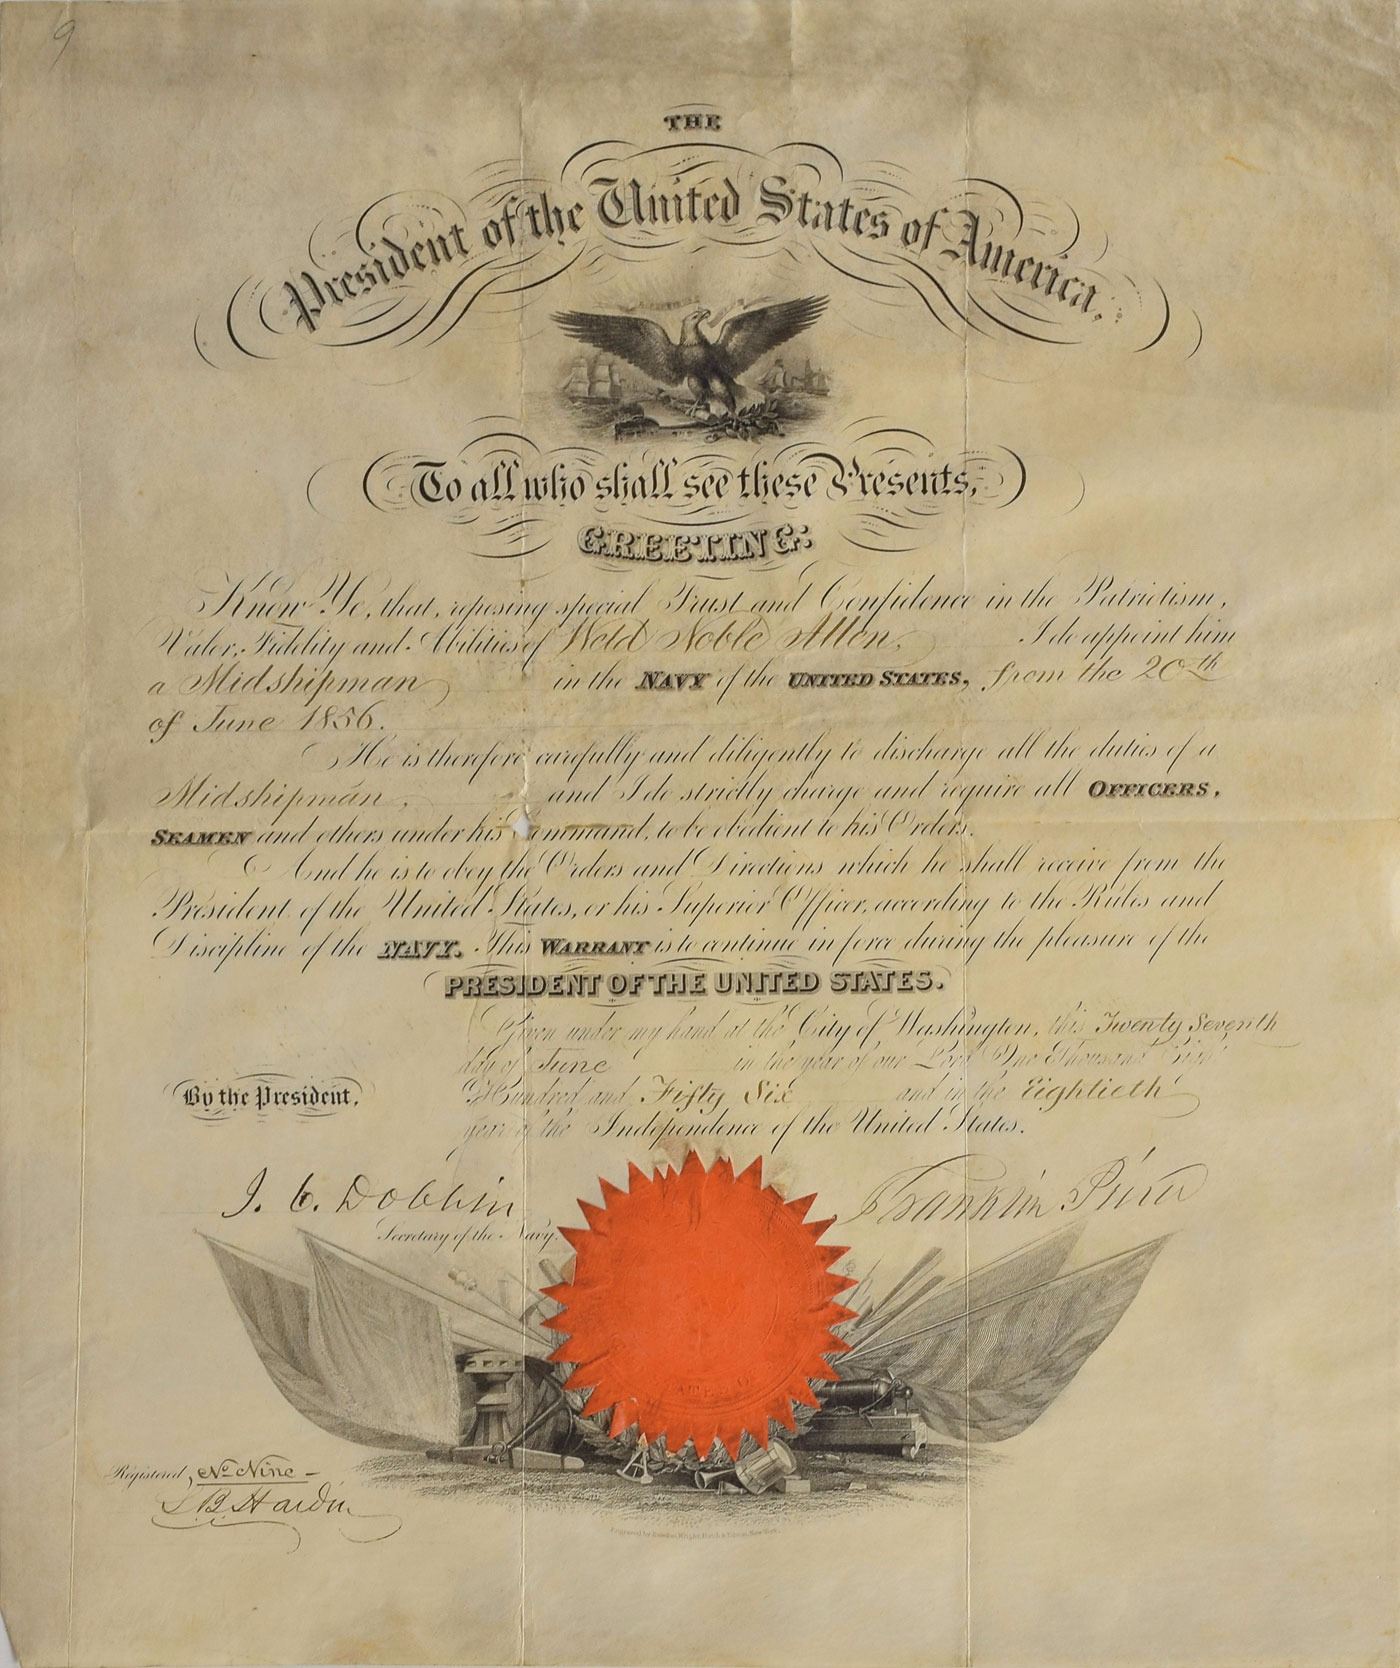 9
THE
President of the United States of America.
To all who shall see these Presents,
GREETING:
Know Ye, that, reposing special Trust and Confidence in the Patriotism,
Valor, Fidelity and Abilities of Weld Noble Allen, I do appoint him
a Midshipman in the NAVY of the UNITED STATES, from the 20th
of June 1856.
He is therefore carefully and diligently to discharge all the duties of a
Midshipman, and I do strictly charge and require all OFFICERS,
SEAMEN and others under his Command, to be obedient to his Orders.
And he is to obey the Orders and Directions which he shall receive from the
President of the United States, or his Superior Officer, according to the Rules and
Discipline of the NAVY. This WARRANT is to continue in force during the pleasure of the
PRESIDENT OF THE UNITED STATES.
Given under my hand at the City of Washington, this Twenty Seventh
day of June in the year of our Lord One Thousand Eight
Hundred and Fifty Six and in the Eightieth
year of the Independence of the United States.
By the President.
J. C. Dobbin Franklin Pierce
Secretary of the Navy.
Registered, No. Nine -
L B Hardin
Engraved by New York